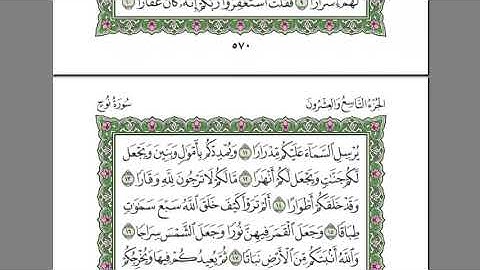 لَهُمْ إِسْرَارًا ٩ فَقُلْتُ ٱسْتَغْفِرُوا۟ رَبَّكُمْ إِنَّهُۥ كَانَ غَفَّارًا ١٠
٥٧٠
الجزء التاسع والعشرون
سورة نوح
يُرْسِلِ ٱلسَّمَآءَ عَلَيْكُم مِّدْرَارًا ١١ وَيُمْدِدْكُم بِأَمْوَٰلٍ وَبَنِينَ وَيَجْعَل
لَّكُمْ جَنَّٰتٍ وَيَجْعَل لَّكُمْ أَنْهَٰرًا ١٢ مَّا لَكُمْ لَا تَرْجُونَ لِلَّهِ وَقَارًا ١٣
وَقَدْ خَلَقَكُمْ أَطْوَارًا ١٤ أَلَمْ تَرَوْا۟ كَيْفَ خَلَقَ ٱللَّهُ سَبْعَ سَمَٰوَٰتٍ
طِبَاقًا ١٥ وَجَعَلَ ٱلْقَمَرَ فِيهِنَّ نُورًا وَجَعَلَ ٱلشَّمْسَ سِرَاجًا ١٦
وَٱللَّهُ أَنۢبَتَكُم مِّنَ ٱلْأَرْضِ نَبَاتًا ١٧ ثُمَّ يُعِيدُكُمْ فِيهَا وَيُخْرِجُكُمْ